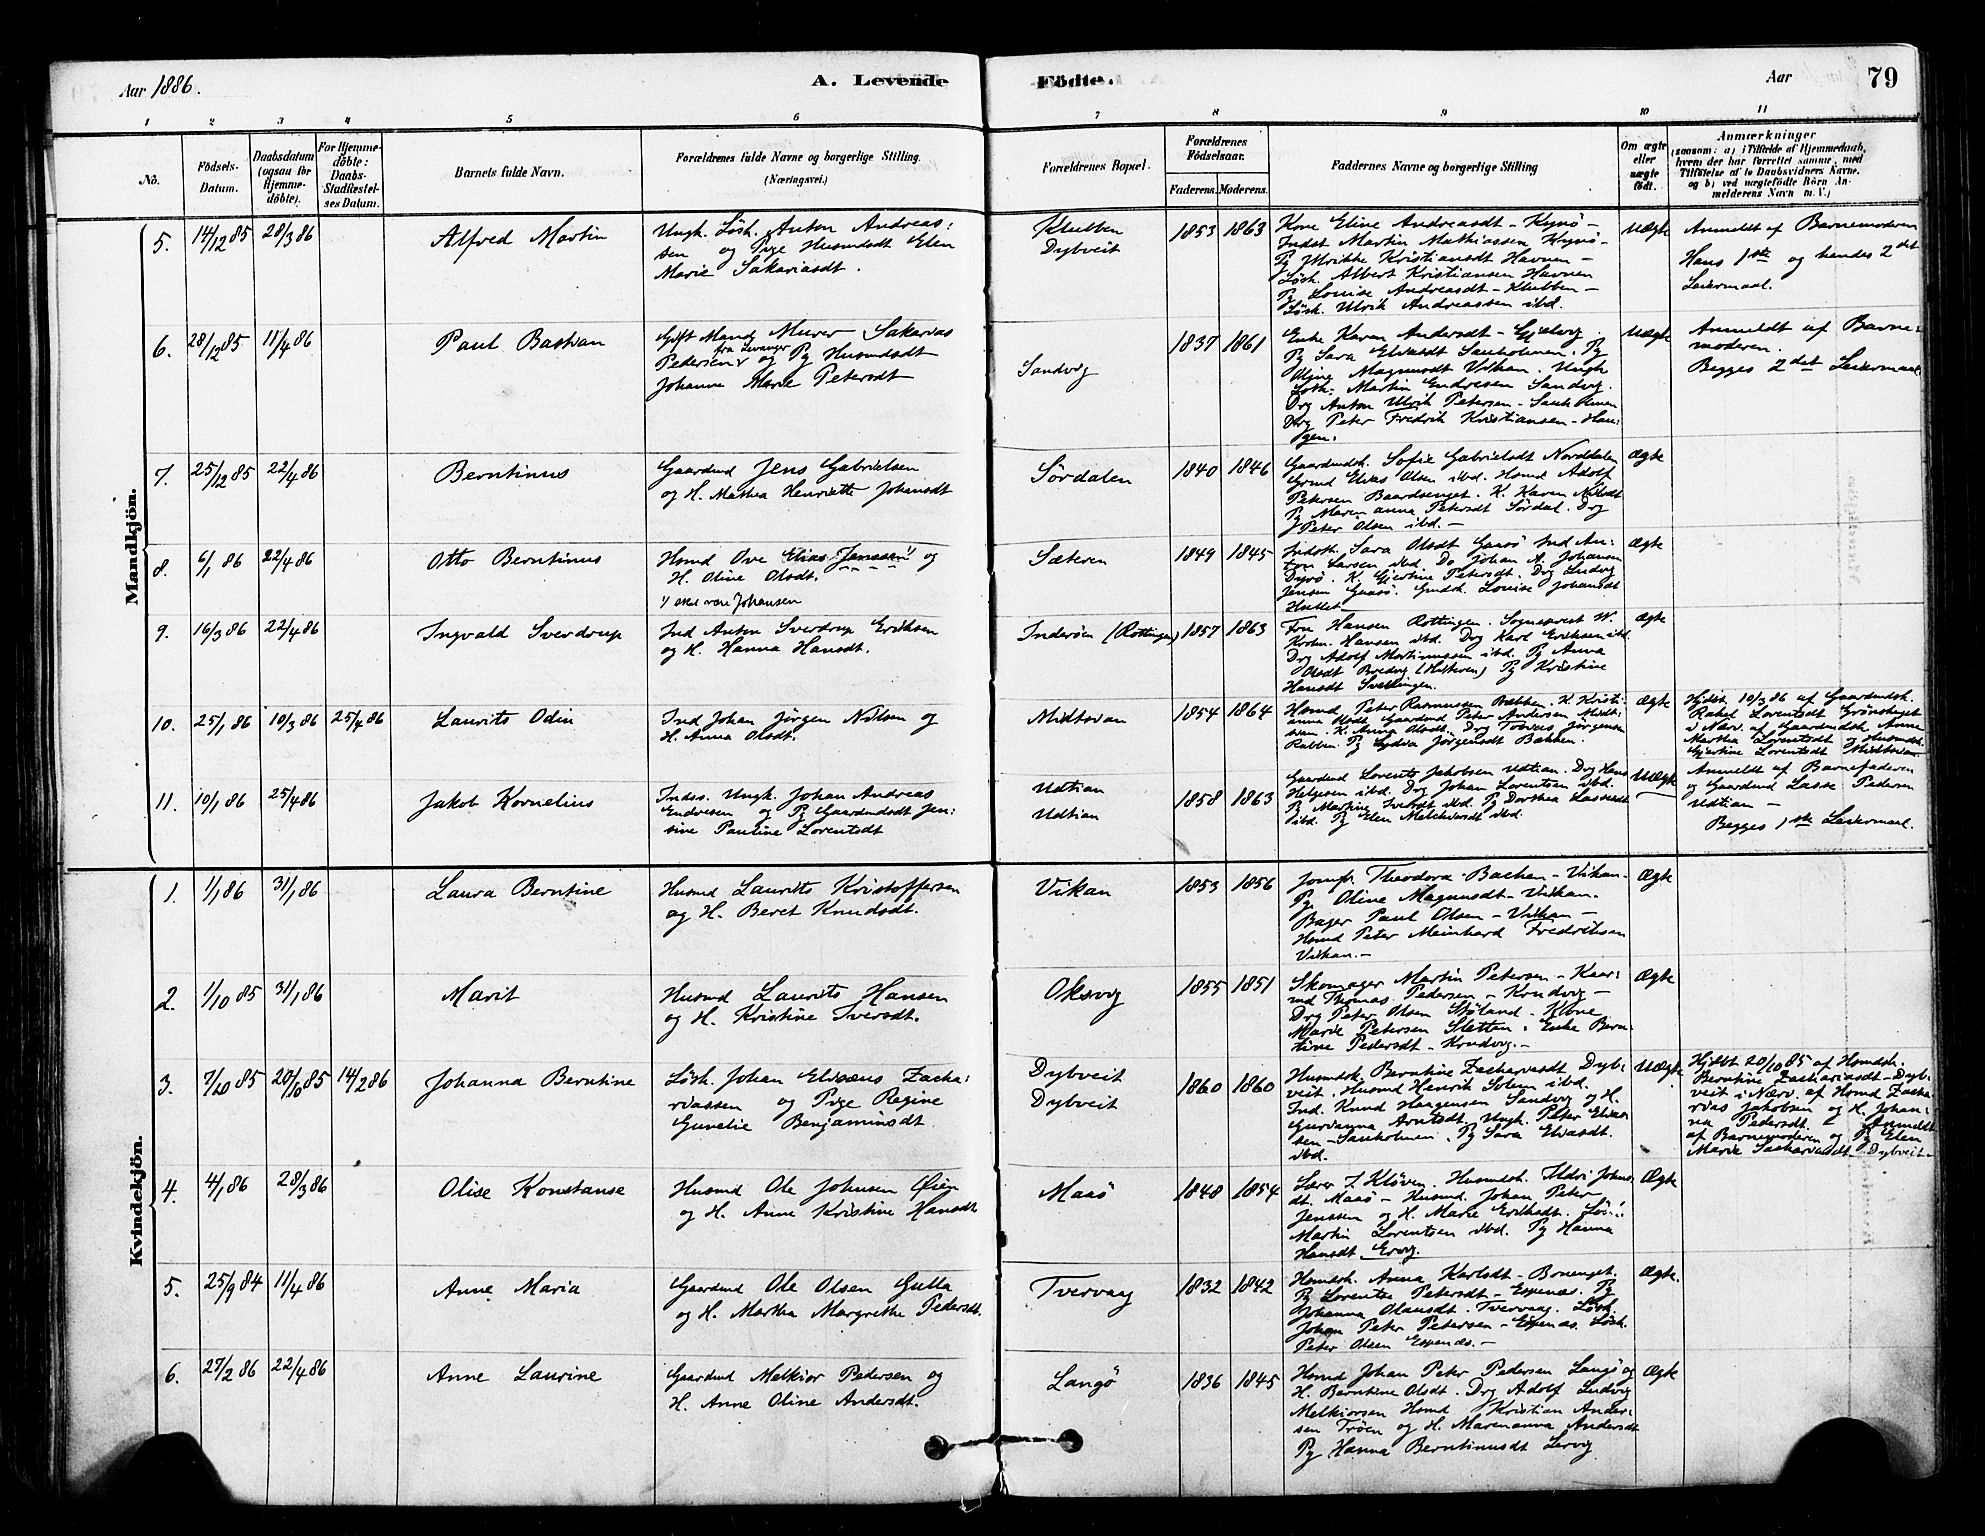 Aar 1886.
A. Levende
Födte.
Aar
79
1 2 3 4 5 6 7 8 9 10 11
No.
Födsels-
Datum.
Daabsdatum
(ogsaa for
Hjemme-
döbte).
For Hjemme-
döbte:
Daabs-
Stadfæstel-
ses Datum.
Barnets fulde Navn.
Forældrenes fulde Navne og borgerlige Stilling.
(Næringsvei.)
Forældrenes Bopæl.
Forældrenes
Födselsaar.
Faderens. Moderens.
Faddernes Navne og borgerlige Stilling
Om ægte
eller
uægte
födt.
Anmærkninger
(saasom: a) i Tilfælde af Hjemmedaab,
hvem der har forrettet samme, med
Tilföielse af to Daabsvidners Navne,
og b) ved uægtefödte Börn An-
melderens Navn m. V.)
Mandkjön.
5. 14/12 85 28/3 86
Alfred Martin
Ungk. Lösk. Anton Andreas:
sen og Pige Husmdsdt Elen
Marie Sakariasdt.
Klubben
Dybveit
1853 1863
Kone Eline Andreasdt - Kynö -
Indst Martin Mathiassen Kynö -
Pg Ulrikke Kristiansdt Havnen -
Løsk. Albert Kristiansen Havnen
Pg Louise Andreasdt - Klubben -
Løsk. Ulrik Andreassen ibd.
Uægte
Anmeldt af Barnemoderen
Hans 1ste og hendes 2det
Leiermaal.
6. 28/12 85 11/4 86
Paul Bastian
Gift Mand Murer Sakarias
Pedersen fra Levanger og Pg Husmdsdt
Johanna Marie Petersdt
Sandvig
1837 1861
Enke Karen Andersdt - Gjelvig.
Pg Sara Eliasdt Sauholmen. Pg
Oline Magnusdt Vikan. Ungk.
Løsk. Martin Endresen Sandvig.
Drg Anton Ulrik Petersen - Sauholmen
Drg Peter Fredrik Kristiansen - Hau:
gen.
Uægte
Anmeldt af Barne:
moderen.
Begges 2det Leiermaal.
7. 25/12 85 22/4 86
Berntinus
Gaardmd Jens Gabrielsen
og H. Mathea Henriette Johansdt
Sørdalen
1840 1846
Gaardmdsk. Sofie Gabrielsdt Norddalen
Grmd Elias Olsen ibd. Husmd Adolf
Petersen Baardsenget. K. Karen Nilsdt
Pg Maren Anna Petersdt Sørdal. Drg
Peter Olsen ibd. -
Ægte
8. 6/1 86 22/4 86
Otto Berntinus
Husmd Ove Elias Janssen 1) og
H. Oline Olsdt.
1) skal være Johansen
Sæteren
1849 1845
Indsk. Sara Olsdt Gaasö Ind An:
ton Larsen ibd. Do Johan A. Johansen
Dyrö. K. Gjertine Petersdt. Drg Ludvig
Jensen Gaasö. Gmdsk. Louise Johansdt
Ægte
9. 16/3 86 22/4 86
Ingvald Sverdrup
Ind Anton Sverdrup Eriksen
og H. Hanna Hansdt.
Inderöen (Rottingen)
1857 1863
Fru Hansen Rottingen. Sogneprest W.
Hansen ibd. Drg Karl Eriksen ibd.
Drg Adolf Martinussen ibd. Pg Anna
Olsdt Bredvig (Hitteren) Pg Kristine
Hansdt Svellingen.
Ægte
10. 25/1 86 10/3 86 25/4 86
Laurits Odin
Ind Johan Jörgen Nilsen og
H. Anna Olsdt.
Midtsian
1854 1864
Husmd Peter Rasmussen Bakken. K. Kristi:
anna Olsdt. Gaardmd Peter Andersen Midt:
sian. K. Anna Olsdt. Drg Tobias Jörgensen
Rabben. Pg Lydia Jörgensdt Bakken.
Ægte
Hjdbt 10/3 86 af Gaardmdsk.
Rakel Lorentsdt Grönskaget
i Nærv. af Gaardmdsk. Anne
Martha Lorentsdt og Husmdsk.
Gjertine Lorentsdt Midtsian
11. 10/1 86 25/4 86
Jakob Kornelius
Indrs. Ungk. Johan Andreas
Endresen og Pg Gaardmdsdt Jen:
sine Pauline Lorentsdt
Udtian
Udtian
1858 1863
Gaardmd Lorents Jakobsen Udtian. Drg Hans
Helgesen ibd. Drg Johan Lorentsen ibd.
Pg Martine Iversdt ibd. Pg Dorthea Lassesdt
ibd. Pg Elen Melckiorsdt ibd.
Uægte
Anmeldt af Barnefaderen
og Gaardmd Lasse Pedersen
Udtian -
Begges 1ste Leiermaal.
Kvindekjön.
1. 1/1 86 31/1 86
Laura Berntine
Husmd Laurits Kristoffersen
og H. Beret Knudsdt.
Vikan
1853 1856
Jomfr. Theodora Bachen - Vikan.
Pg. Oline Magnusdt - Vikan.
Bager Paul Olsen - Vikan -
Husmd Peter Meinhard Fredriksen
Vikan. -
Ægte
2. 1/10 85 31/1 86
Marit
Husmd Laurits Hansen
og H. Kristine Iversdt.
Oksvig
1855 1851
Skomager Martin Petersen - Kaar:
md Thomas Pedersen - Krudvig -
Drg Peter Olsen Stöland - Kone
Marie Petersen Sletten. Enke Bern:
tine Pedersdt - Krudvig. -
Ægte
3. 7/10 85 20/10 85 14/2 86
Johanna Berntine
Lösk. Johan Elisæus Zacha:
riassen og Pige Regine
Gunelie Benjaminsdt.
Dybveit
Dybveit
1860 1860
Husmdsk. Berntine Zachariasdt Dyb:
veit. Husmd Henrik Solem ibd.
Ind. Knud Haagensen Sandvig og H.
Gurianna Arntsdt. Ungk. Peter Elias:
sen - Sauholmen. Pg Sara Eliasdt.
ibd.
Uægte
Hjdbt 20/10 85 af Husmdsk.
Berntine Zachariasdt - Dyb:
veit i Nærv. af Husmd Zacha:
rias Jakobsen og H. Johan:
na Pedersdt. Anmeldt
af Barnemoderen og Pg Elen
Marie Sachariasdt Dybveit -
4. 4/1 86 28/3 86
Olise Konstanse
Husmd Ole Johnsen Øien
og H. Anne Kristine Hansdt
Maasö
1848 1854
Lærer I. Klöven. Husmdsk. Ildri Johns:
dt. Maasö - Husmd. Johan Peter
Jenssen og H. Marie Eriksdt. Lösk.
Martin Lorentsen ibd. Pg Hanna
Hansdt Ervig.
Ægte
5. 25/9 84 11/4 86
Anne Maria
Gaardmd Ole Olsen Gulla
og H. Martha Margrethe Pedersdt.
Tvervaag
1832 1842
Husmdsk. Anna Karlsdt - Bonenget. Pg
Lorentse Petersdt - Espenes. Pg
Johanna Olausdt. Tvervaag. Lösk.
Johan Peter Petersen - Espenæs. Lösk.
Peter Olsen Espenæs. -
Ægte.
6. 27/2 86 22/4 86
Anne Laurine
Gaardmd Melkior Pedersen og
H. Anne Oline Andersdt.
Langö
1836 1845
Husmd Johan Peter Pedersen Langö og
H. Berntine Olsdt. Drg Adolf Ludvig
Melkiorsen Husmd Kristian Ander:
sen Tröen og H. Marenanna Andersdt
Pg Hanna Berntinusdt Lervig
Ægte